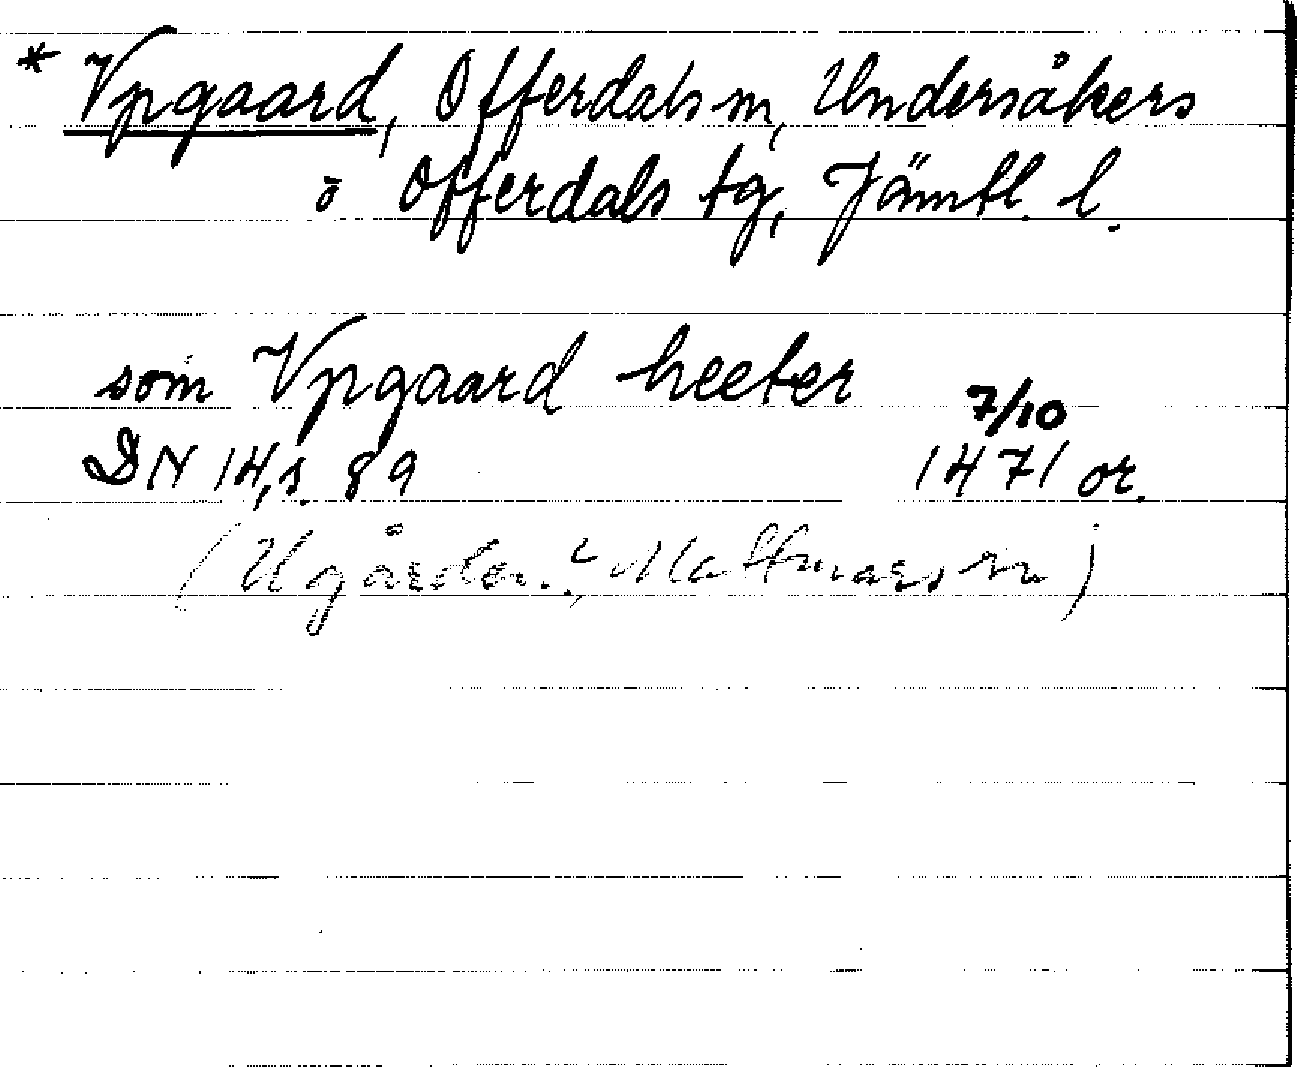 * Vpgaard, Offerdals sn, Undersåkers
o Offerdals tg, Jämtl. l.
som Vpgaard heeter
7/10
DN 14, s. 89 1471 or.
(Ugården?, Mattmars sn)